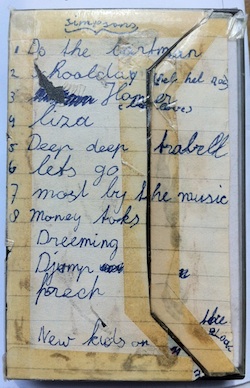 simpsons
1 Do the bartman
2 Schoolday
3 Homer
4 liza
5 Deep deep trabell
6 lets go
7 most by the music
8 Money toks
Dreeming
Djump
prech
New kids on the Bloc